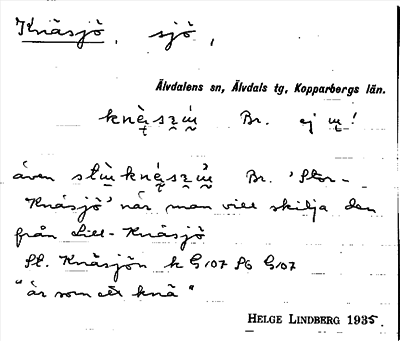 Knäsjö, sjö,
Älvdalens sn, Älvdals tg, Kopparbergs län.
Br. ej !
även Br. 'Stor-
Knäsjö' när man vill skilja den
från Lill-Knäsjö
Pl. Knäsjön k G107 Sö G107
"är som ett knä"
HELGE LINDBERG 1935.